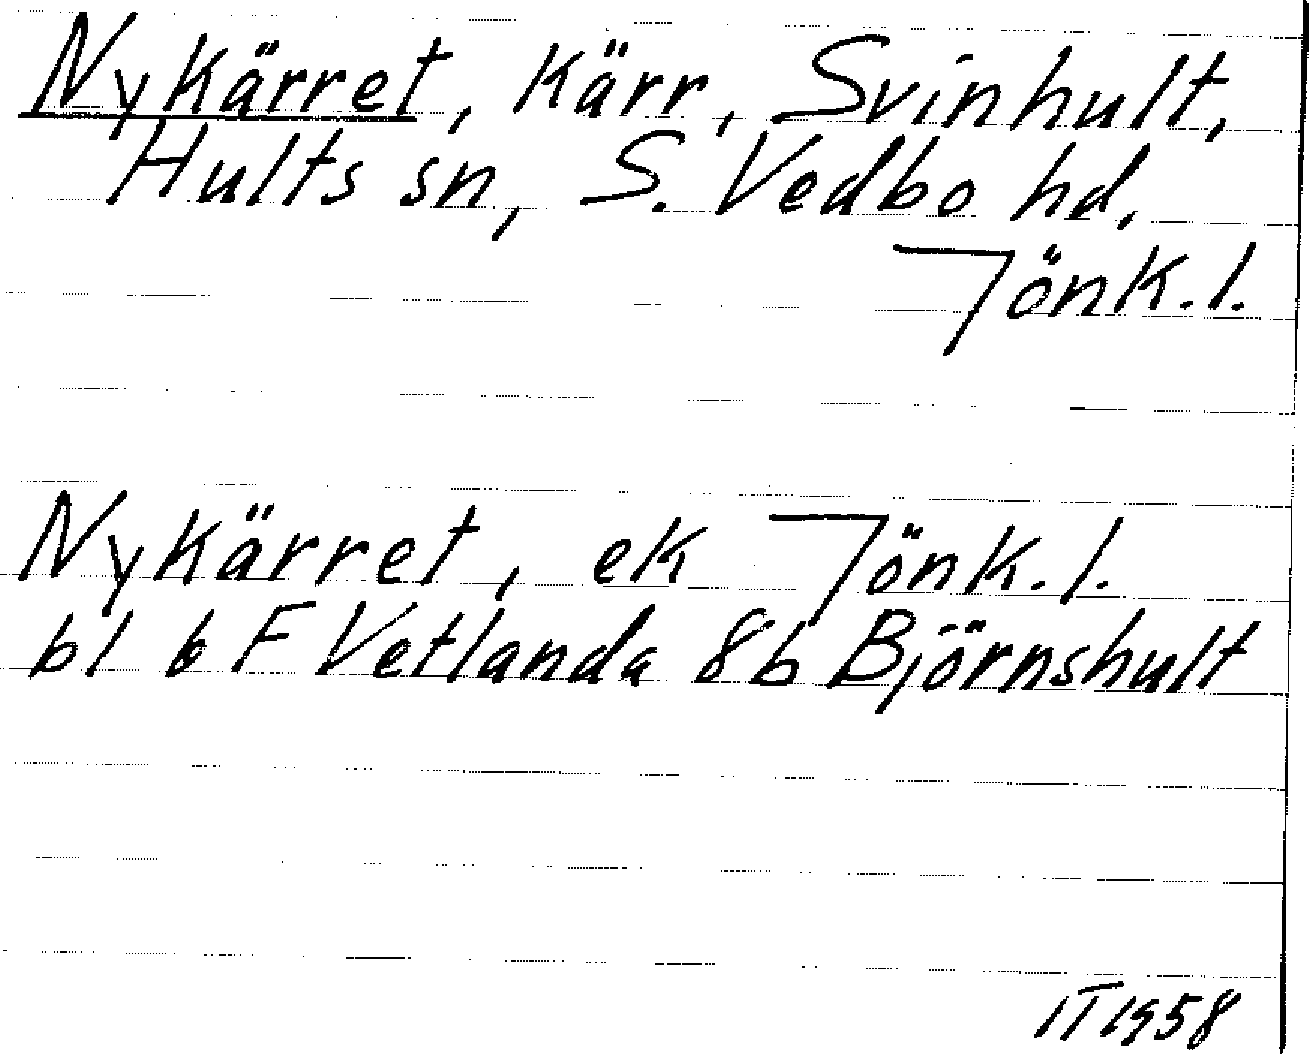 Nykärret, kärr, Svinhult,
Hults sn, S. Vedbo hd,
Jönk.l.
Nykärret, ek Jönk.l.
bl 6 F Vetlanda 8b Björnshult
IT 1958